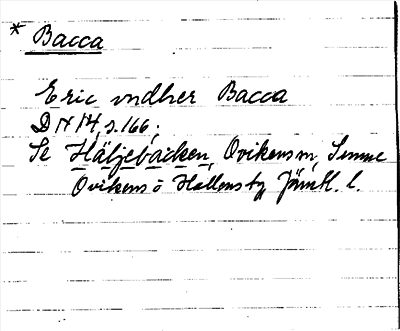 * Bacca
Eric vndher Bacca
DN 14, s. 166;
Se Häljebacken, Ovikens sn,
Ovikens o Hallens tg Jämtl. l.